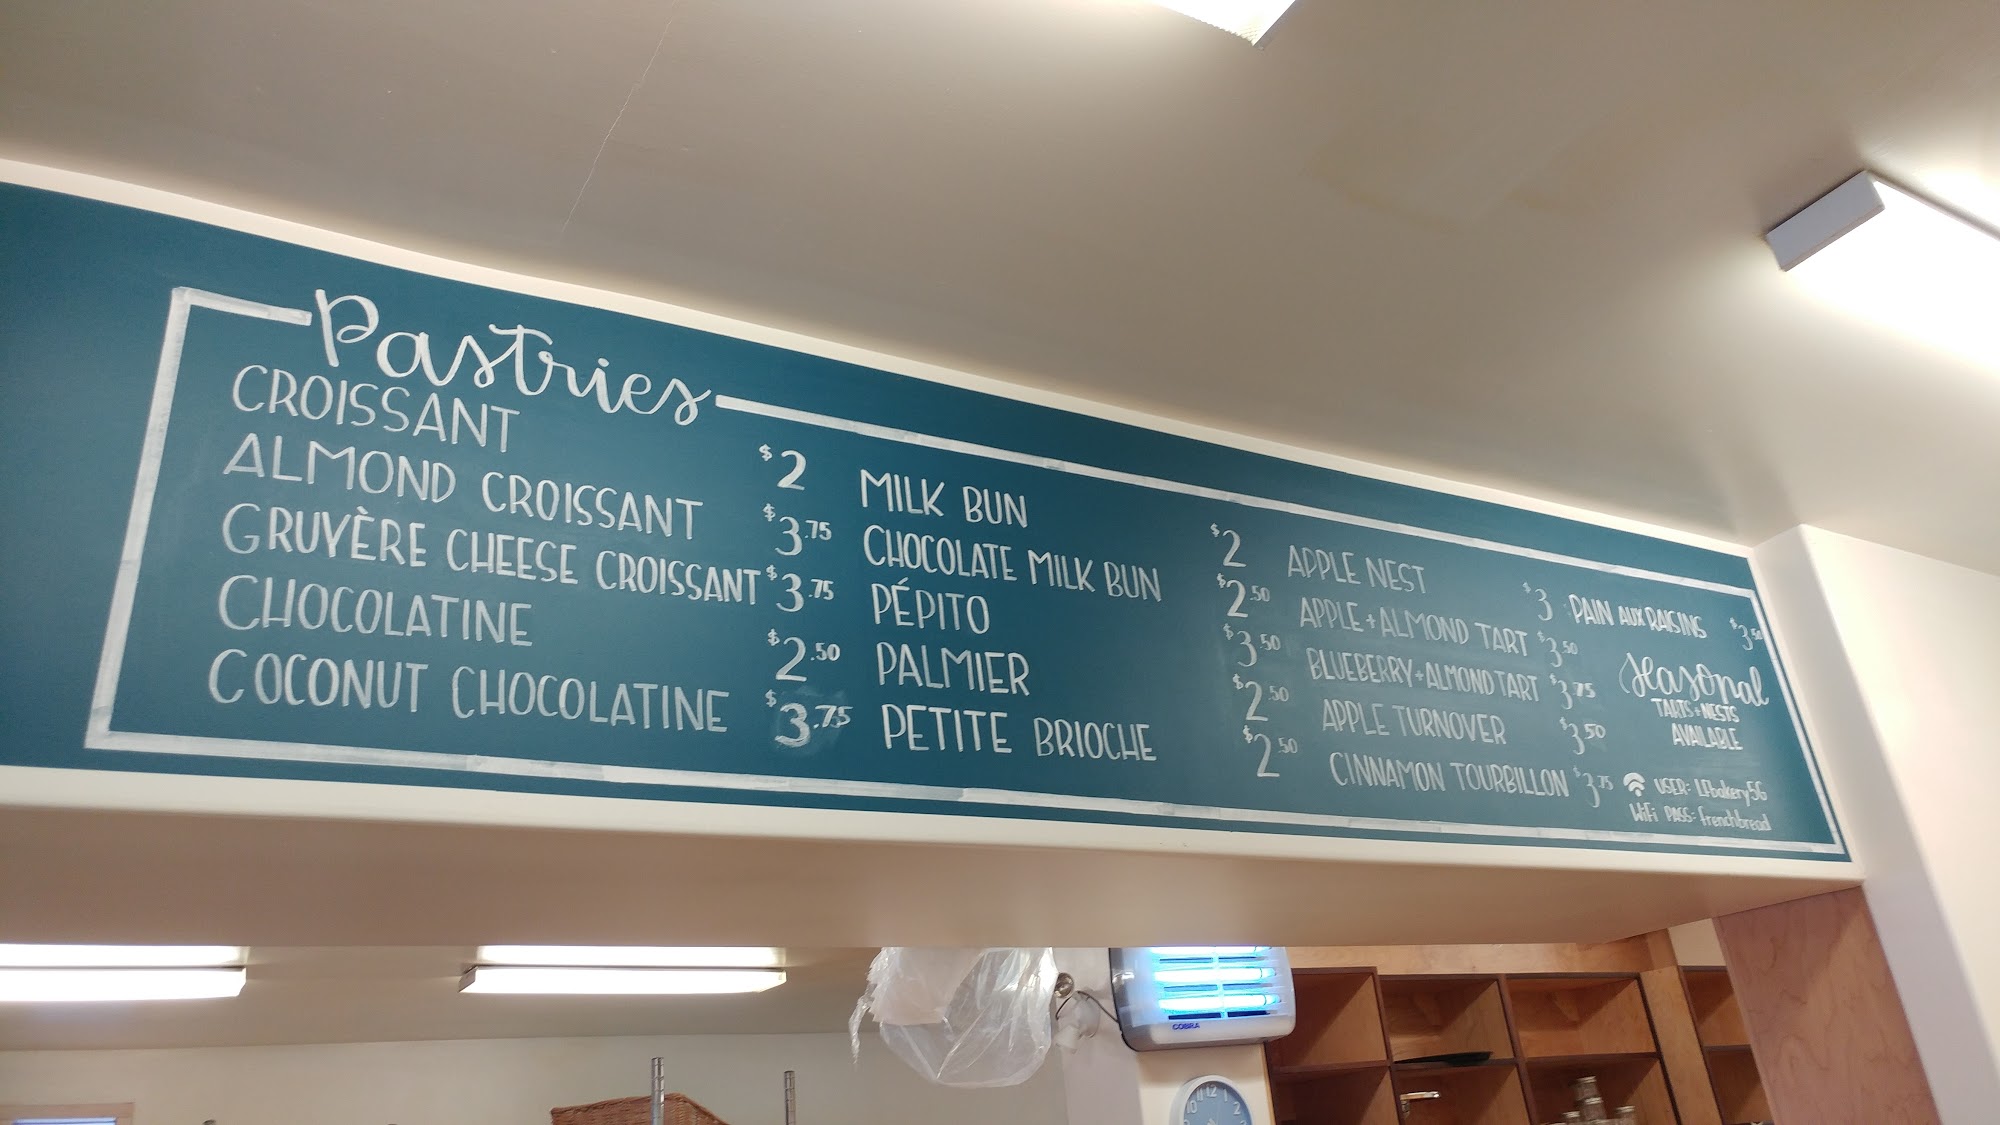 Pastries
CROISSANT $2
ALMOND CROISSANT $3.75
GRUYÈRE CHEESE CROISSANT $3.75
CHOCOLATINE $2.50
COCONUT CHOCOLATINE $3.75
MILK BUN $2
CHOCOLATE MILK BUN $2.50
PÉPITO $3.50
PALMIER $2.50
PETITE BRIOCHE $2.50
APPLE NEST $3
APPLE + ALMOND TART $3.50
BLUEBERRY + ALMOND TART $3.75
APPLE TURNOVER $3.50
CINNAMON TOURBILLON $3.75
PAIN AUX RAISINS $3.50
Seasonal
TARTS + NESTS
AVAILABLE
USER: LFbakery5G
WiFi PASS: frenchbread
COBRA
10 11 12 1 2